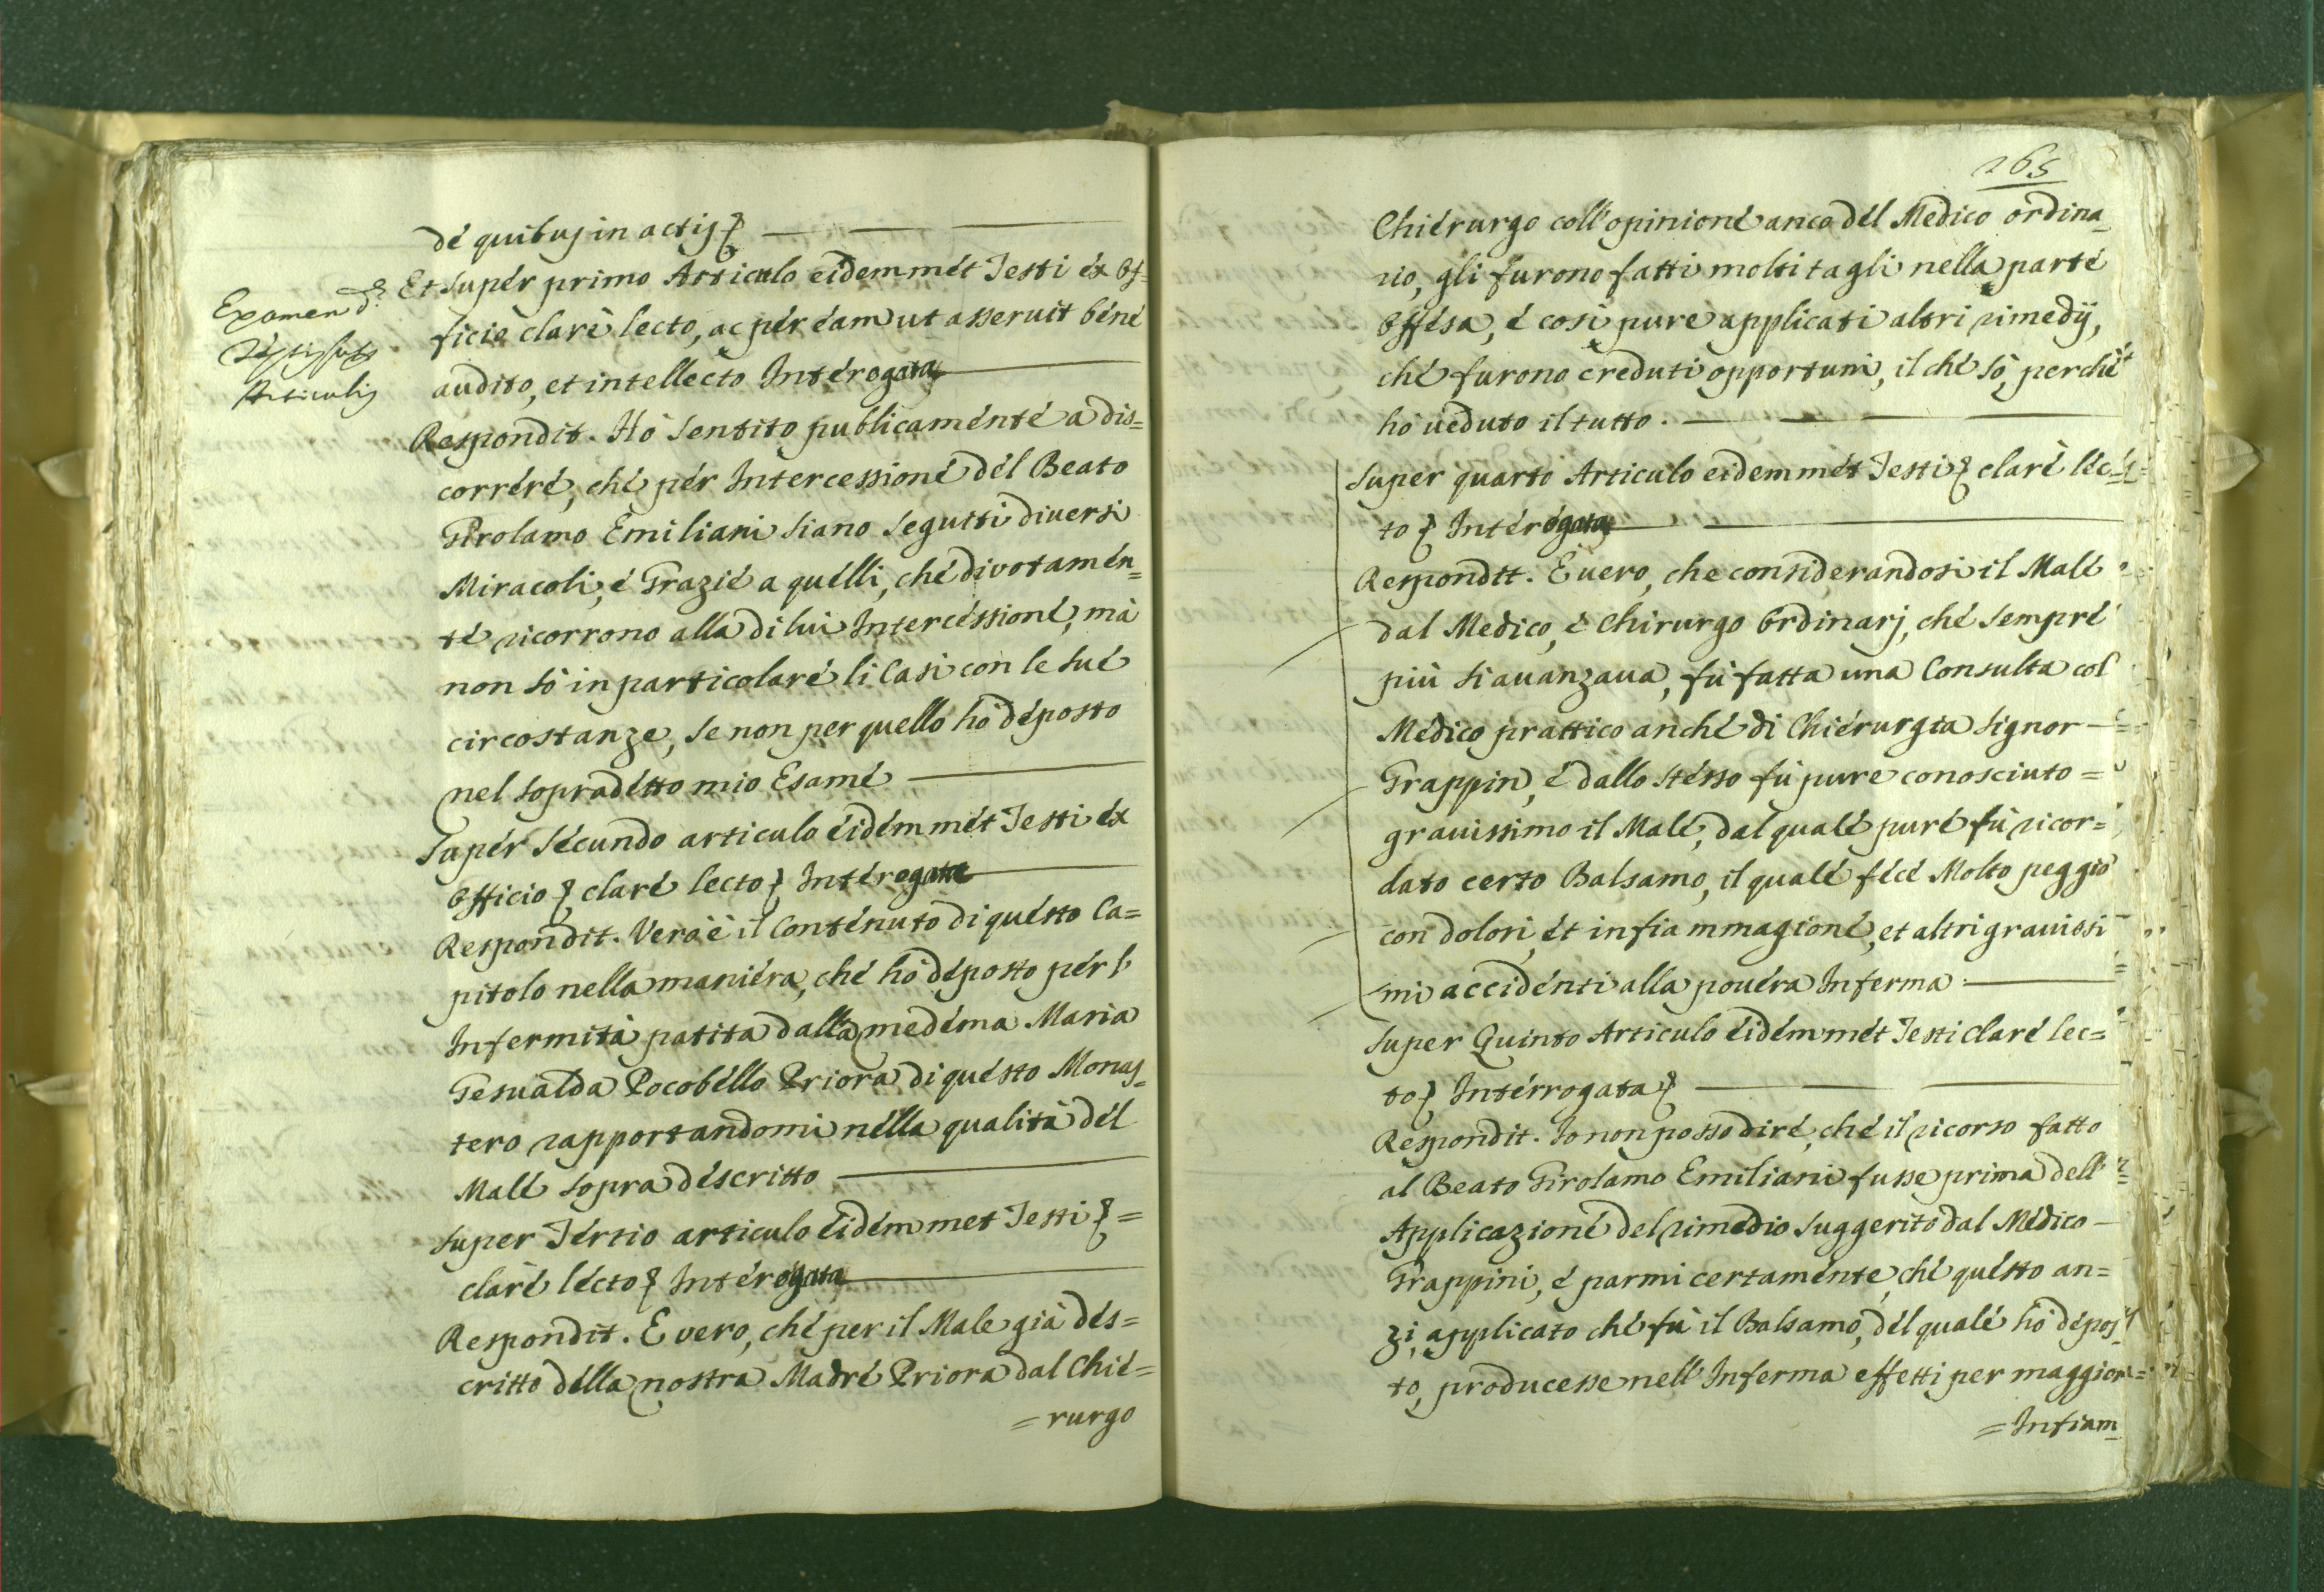 de quibus in actis &
Examen d.
Articulis
Et super primo Articulo eidemmet Testi ex Of-
ficio clarè lecto, ac per eam ut asseruit bene
audito, et intellecto Interogata
Respondit. Hò sentito publicamente a dis=
correre, che per Intercessione del Beato
Girolamo Emiliani siano seguiti diversi
Miracoli, e Grazie a quelli, che divotamen=
te ricorrono alla di lui Intercessione, mà
non sò in particolare li Casi con le sue
circostanze, se non per quello hò deposto
nel sopradetto mio Esame
Super secundo articulo eidemmet Testi ex
Officio & clare lecto & Interogata
Respondit. Vero è il Contenuto di questo Ca=
pitolo nella maniera, che hò deposto per l'
Infermità patita dalla medema Maria
Gesualda Pocobello Priora di questo Monas=
tero rapportandomi nella qualità del
Male sopra descritto
Super Tertio articulo eidemmet Testi & =
clarè lecto & Interogata
Respondit. E vero, che per il Male già des=
critto della nostra Madre Priora dal Chie=
= rurgo
265
Chierurgo coll' opinione anco del Medico ordina=
rio, gli furono fatti molti tagli nella parte
Offesa, e così pure applicati altri rimedij,
che furono creduti opportuni, il che sò, perchè
hò ueduto il tutto.
Super quarto Articulo eidemmet Testi & clarè lec=
to & Interogata
Respondit. E uero, che considerandosi il Male
dal Medico, e Chirurgo Ordinarj, che sempre
più si auanzaua, fù fatta una Consulta col
Medico prattico anche di Chierurgia Signor
Grappin, e dallo stesso fù pure conosciuto =
grauissimo il Male, dal quale pure fù ricor=
dato certo Balsamo, il quale fece Molto peggio
con dolori, et infiammagione, et altri grauissi
mi accidenti alla pouera Inferma
Super Quinto Articulo eidemmet Testi clare lec=
to & Interrogata &
Respondit. Io non posso dire, che il ricorso fatto
al Beato Girolamo Emiliani fusse prima dell'
Applicazione del rimedio suggerito dal Medico
Grappini, e parmi certamente, che questo an=
zi, applicato che fù il Balsamo, del quale hò depos=
to, producesse nell' Inferma effetti per maggior=
= Infiam=